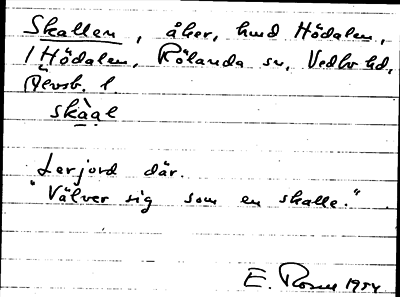 Skallen, åker, hmd Hödalen,
1 Hödalen, Rölanda sn, Vedbo hd,
Älvsb. l.
skàał
Lerjord där.
"Välver sig som en skalle."
E. Rosm 1954